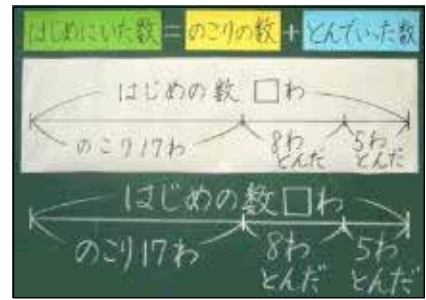 はじめにいた数=のこりの数+とんでいった数
はじめの数 □わ
のこり17わ 8わとんだ 5わとんだ
はじめの数□わ
のこり17わ 8わとんだ 5わとんだ